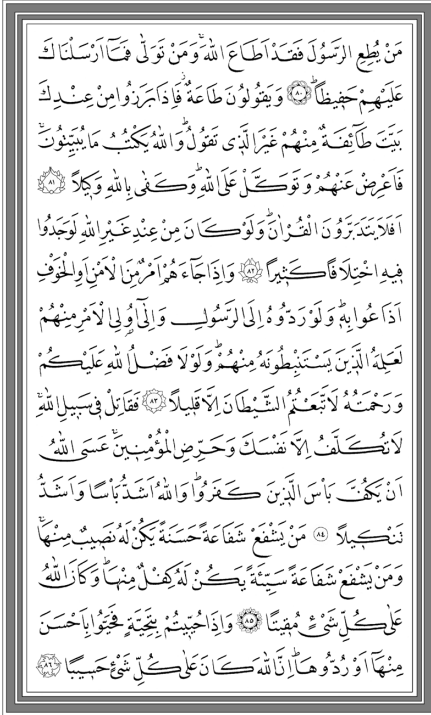 مَنْ يُطِعِ الرَّسُولَ فَقَدْ اَطَاعَ اللّٰهَۚ وَمَنْ تَوَلّٰى فَمَٓا اَرْسَلْنَاكَ
عَلَيْهِمْ حَفٖيظاًۜ ﴿٨٠﴾ وَيَقُولُونَ طَاعَةٌۘ فَاِذَا بَرَزُوا مِنْ عِنْدِكَ
بَيَّتَ طَٓائِفَةٌ مِنْهُمْ غَيْرَ الَّذٖى تَقُولُۜ وَاللّٰهُ يَكْتُبُ مَا يُبَيِّتُونَۚ
فَاَعْرِضْ عَنْهُمْ وَتَوَكَّلْ عَلَى اللّٰهِۜ وَكَفٰى بِاللّٰهِ وَكٖيلاً ﴿٨١﴾
اَفَلَا يَتَدَبَّرُونَ الْقُرْاٰنَۜ وَلَوْ كَانَ مِنْ عِنْدِ غَيْرِ اللّٰهِ لَوَجَدُوا
فٖيهِ اخْتِلَافاً كَثٖيراً ﴿٨٢﴾ وَاِذَا جَٓاءَهُمْ اَمْرٌ مِنَ الْاَمْنِ اَوِ الْخَوْفِ
اَذَاعُوا بِهٖۜ وَلَوْ رَدُّوهُ اِلَى الرَّسُولِ وَاِلٰٓى اُو۬لِى الْاَمْرِ مِنْهُمْ
لَعَلِمَهُ الَّذٖينَ يَسْتَنْبِطُونَهُ مِنْهُمْۜ وَلَوْلَا فَضْلُ اللّٰهِ عَلَيْكُمْ
وَرَحْمَتُهُ لَاتَّبَعْتُمُ الشَّيْطَانَ اِلَّا قَلٖيلاً ﴿٨٣﴾ فَقَاتِلْ فٖى سَبٖيلِ اللّٰهِۚ
لَا تُكَلَّفُ اِلَّا نَفْسَكَ وَحَرِّضِ الْمُؤْمِنٖينَۚ عَسَى اللّٰهُ
اَنْ يَكُفَّ بَأْسَ الَّذٖينَ كَفَرُواۜ وَاللّٰهُ اَشَدُّ بَأْساً وَاَشَدُّ
تَنْكٖيلاً ﴿٨٤﴾ مَنْ يَشْفَعْ شَفَاعَةً حَسَنَةً يَكُنْ لَهُ نَصٖيبٌ مِنْهَاۚ
وَمَنْ يَشْفَعْ شَفَاعَةً سَيِّئَةً يَكُنْ لَهُ كِفْلٌ مِنْهَاۜ وَكَانَ اللّٰهُ
عَلٰى كُلِّ شَیْءٍ مُقٖيتاً ﴿٨٥﴾ وَاِذَا حُيّٖيتُمْ بِتَحِيَّةٍ فَحَيُّوا بِاَحْسَنَ
مِنْهَٓا اَوْ رُدُّوهَاۜ اِنَّ اللّٰهَ كَانَ عَلٰى كُلِّ شَیْءٍ حَسٖيباً ﴿٨٦﴾